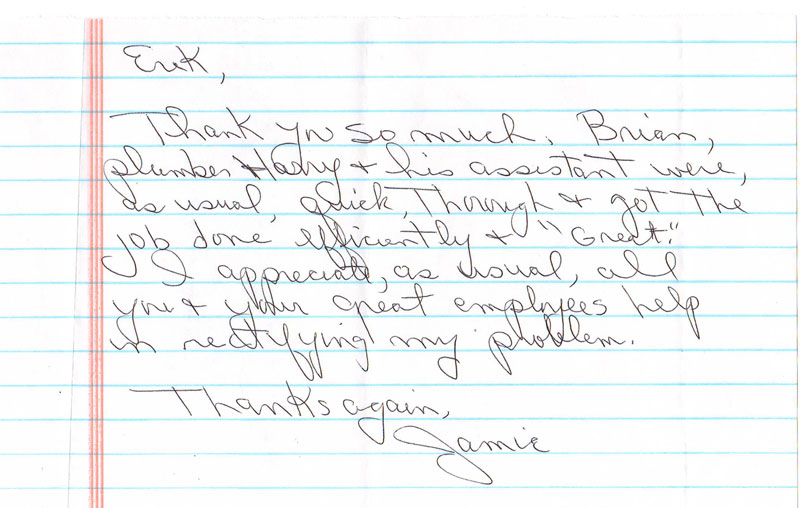 Erik,
Thank you so much. Brian,
plumber Harry + his assistant were,
as usual, quick, through + got the
job done efficiently + "Great".
I appreciate, as usual, all
you + your great employees help
in rectifying my problem.
Thanks again,
Jamie